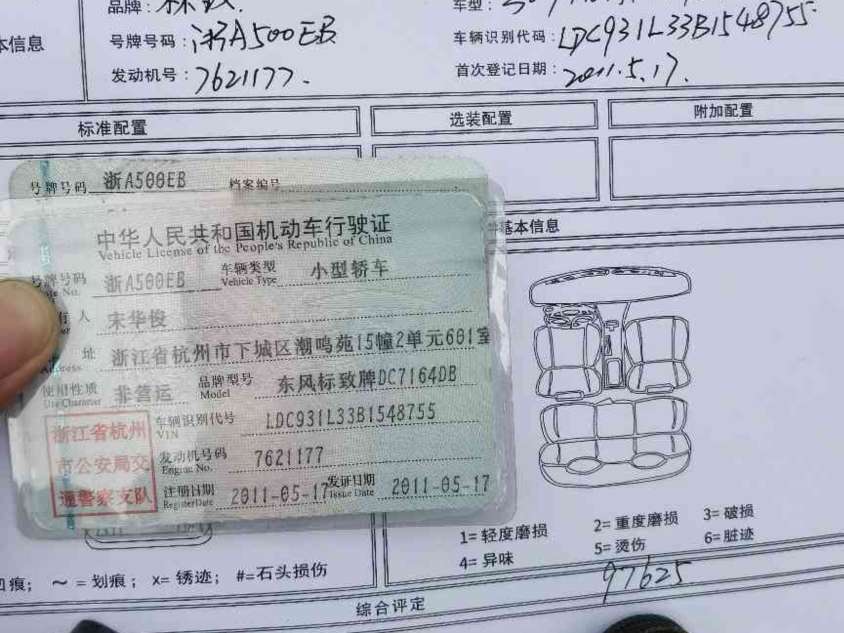 品牌：
车型：
本信息
号牌号码：浙A500EB
车辆识别代码：LDC931L33B1548755
发动机号：7621177.
首次登记日期：2011.5.17.
标准配置
选装配置
附加配置
号牌号码 浙A500EB 档案编号
基本信息
中华人民共和国机动车行驶证
Vehicle License of the People's Republic of China
号牌号码 浙A500EB 车辆类型 小型轿车
Vehicle Type
人 宋华俊
址 浙江省杭州市下城区潮鸣苑15幢2单元601室
Address
使用性质 非营运 品牌型号 东风标致牌DC7164DB
Use Character Model
浙江省杭州
市公安局交
通警察支队
车辆识别代号 LDC931L33B1548755
VIN
发动机号码 7621177
Engine No.
注册日期 2011-05-17 发证日期 2011-05-17
Register Date Issue Date
1=轻度磨损 2=重度磨损 3=破损
4=异味 5=烫伤 6=脏迹
凹痕； ～=划痕； x=锈迹； #=石头损伤
97625
综合评定